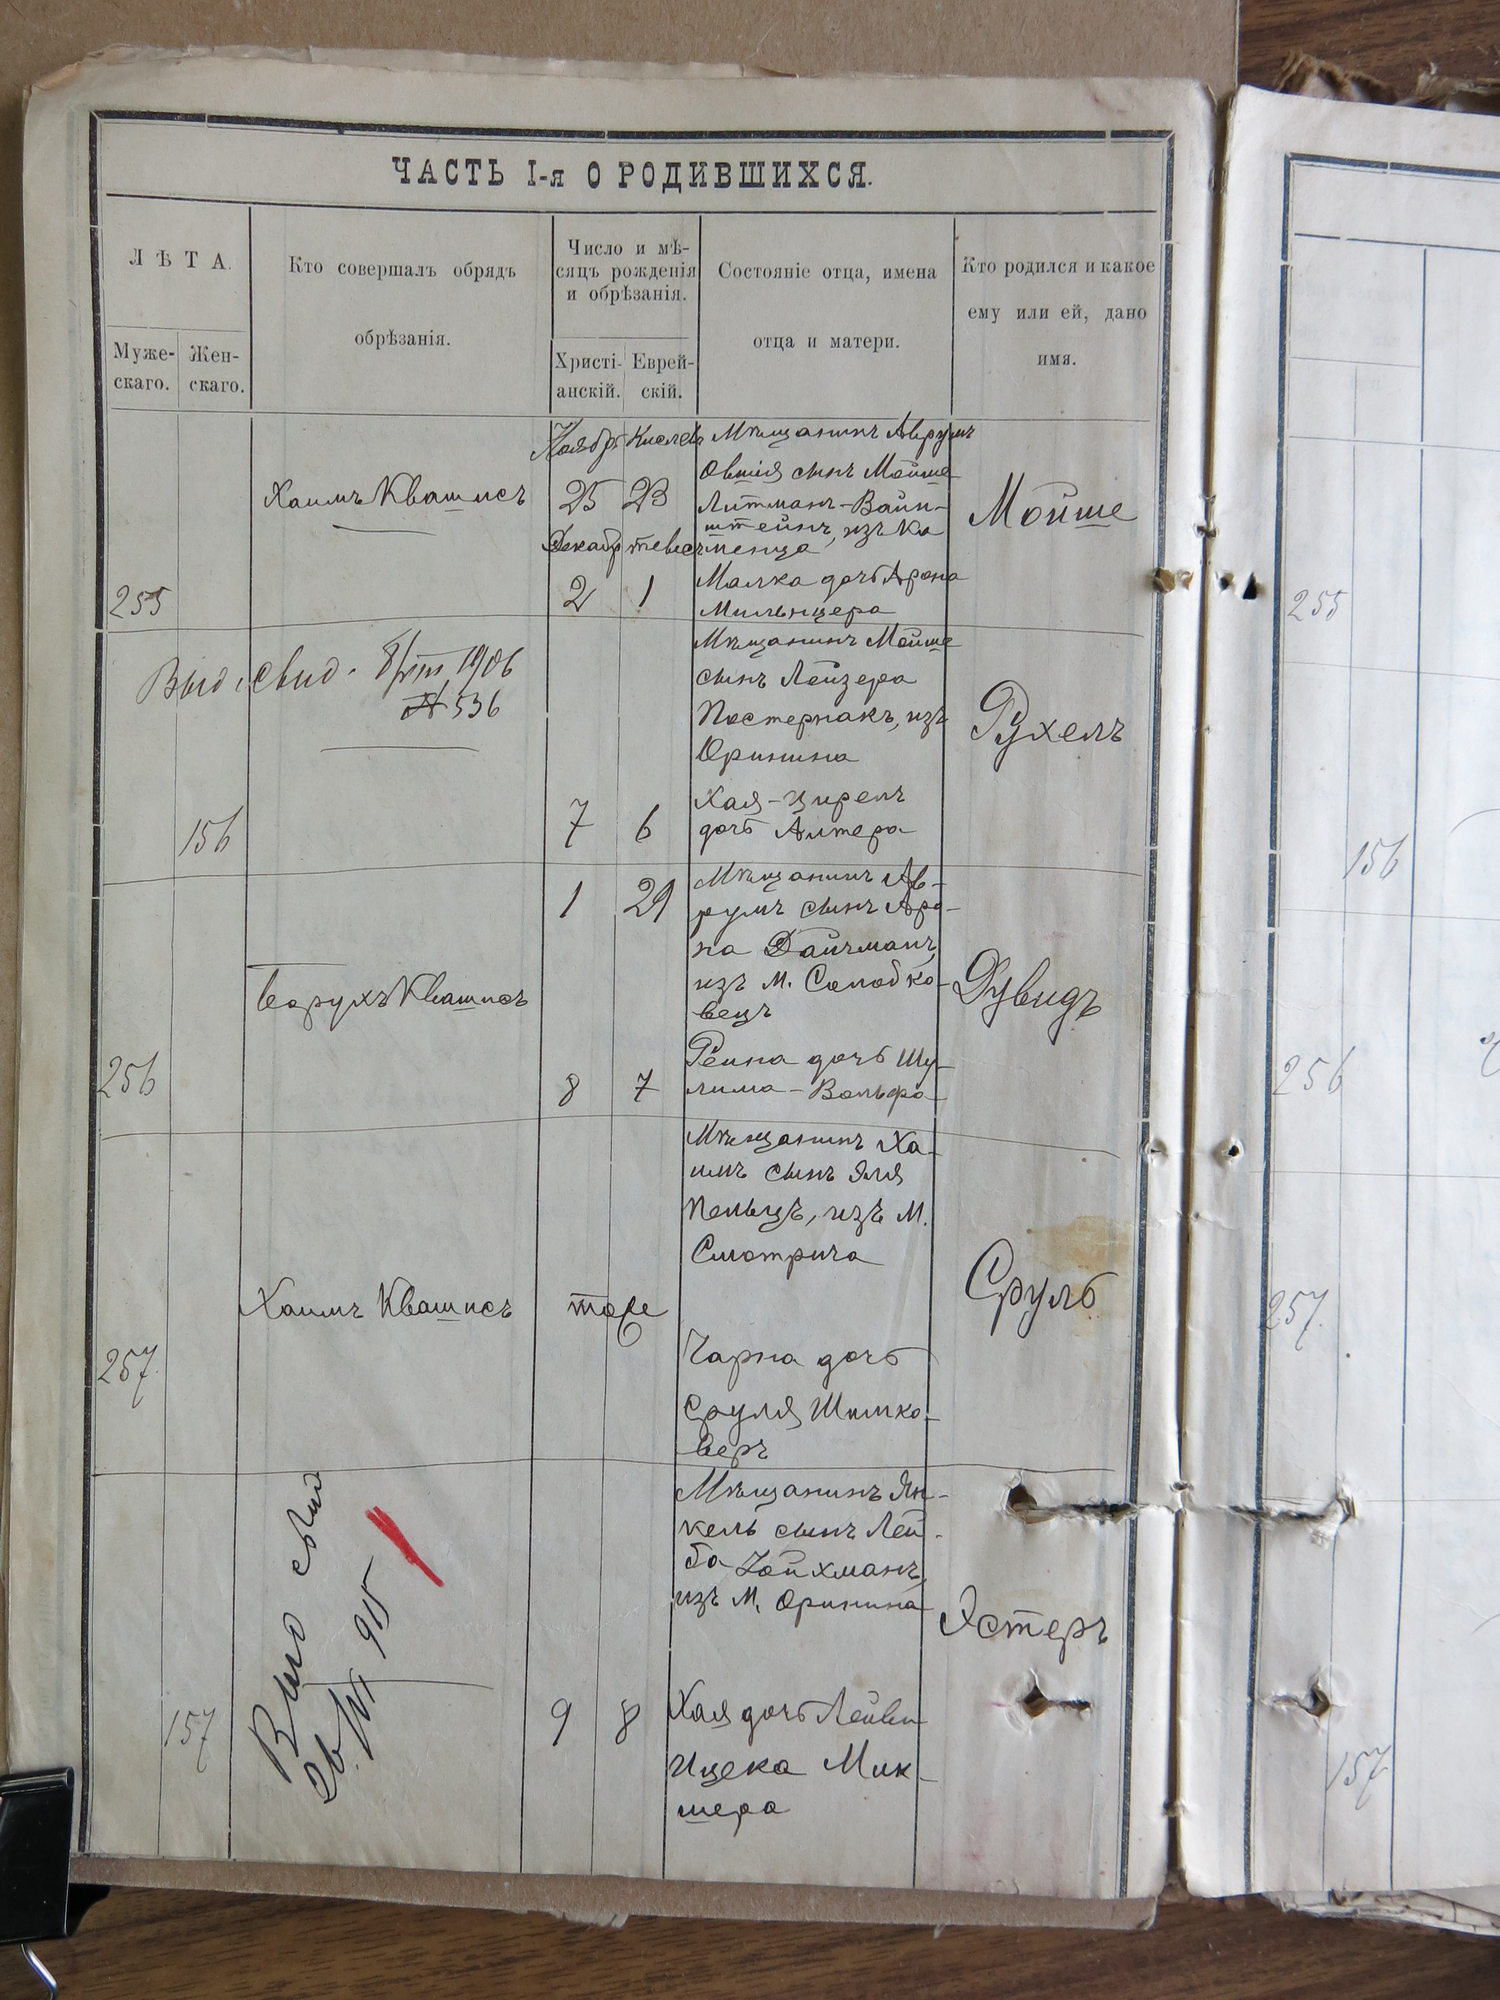 ЧАСТЬ I-я О РОДИВШИХСЯ.
ЛѢТА.
Муже-
скаго.
Жен-
скаго.
Кто совершалъ обрядъ
обрѣзанія.
Число и мѣ-
сяцъ рожденія
и обрѣзанія.
Христі-
анскій.
Еврей-
скій.
Состояніе отца, имена
отца и матери.
Кто родился и какое
ему или ей, дано
имя.
255
Хаимъ Квашисъ
Ноябрь Кислевъ
25 23
Декабр тевесъ
2 1
Мѣщанинъ Аврумъ
Овшія сынъ Мойше
Литманъ-Вайн-
штейнъ, изъ Ка
менца
Малка дочь Арона
Мильнцера
Мойше
255
Выд. свид. 1906
№ 536
156
7 6
Мѣщанинъ Мойше
сынъ Лейзера
Постернакъ, изъ
Оринина
Хая-Цирель
дочь Алтера
Рухель
156
256
Борухъ Квашисъ
1 29
8 7
Мѣщанинъ Ав-
румъ сынъ Аро-
на Дайчманъ,
изъ м. Солобко-
вецъ
Рейна дочь Шу-
лима-Вольфа
Дувидъ
256
257.
Хаимъ Квашисъ
тоже
Мѣщанинъ Ха-
имъ сынъ Эля
Пельцъ, изъ м.
Смотрича
Чарна дочь
Сруля Шимко-
веръ
Сруль
257.
Выд свид
915
157
9 8
Мѣщанинъ Ян-
кель сынъ Лей-
ба Зойхманъ,
изъ м. Оринина
Хая дочь Лейви
Ицека Мик-
шера
Эстеръ
157